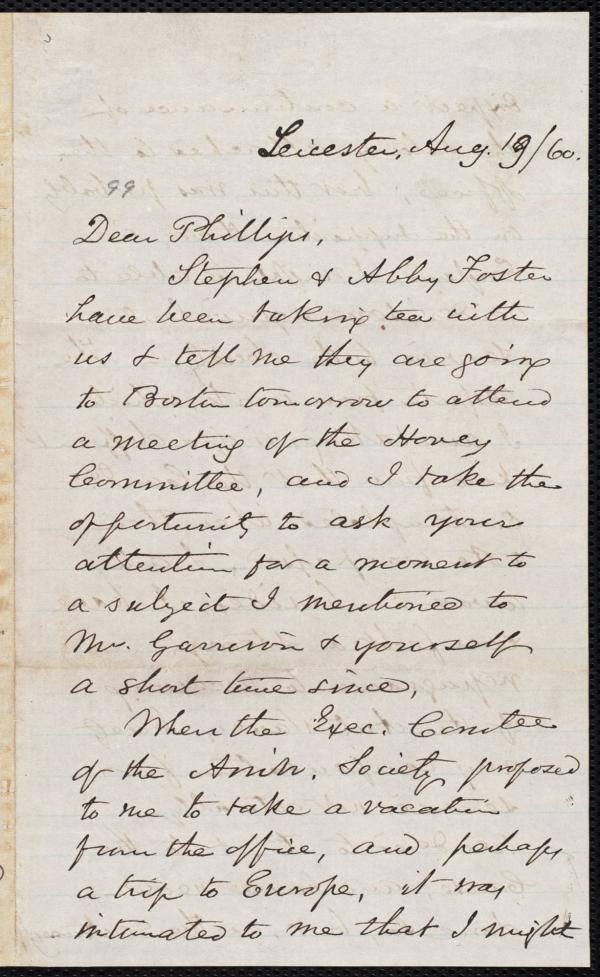 Leicester, Aug. 19/60.
99
Dear Phillips,
Stephen & Abby Foster
have been taking tea with
us & tell me they are going
to Boston tomorrow to attend
a meeting of the Hovey
Committee, and I take the
opportunity to ask your
attention for a moment to
a subject I mentioned to
Mr. Garrison & yourself
a short time since,
When the Exec. Comtee
of the Am. Society proposed
to me to take a vacation
from the office, and perhaps
a trip to Europe, it was
intimated to me that I might